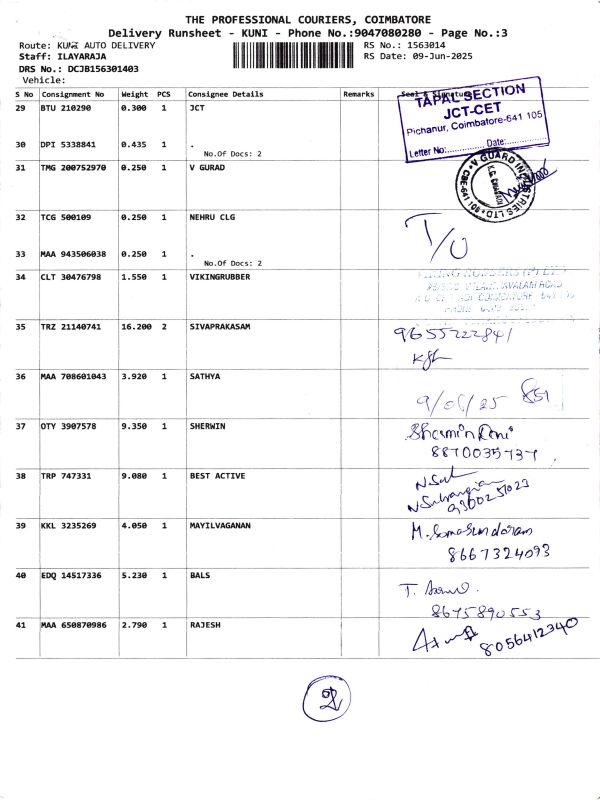 THE PROFESSIONAL COURIERS, COIMBATORE
Delivery Runsheet - KUNI - Phone No.:9047080280 - Page No.:3
Route: KUNI AUTO DELIVERY RS No.: 1563014
Staff: ILAYARAJA RS Date: 09-Jun-2025
DRS No.: DCJB156301403
Vehicle:
S No Consignment No Weight PCS Consignee Details Remarks Seal & Signature
29 BTU 210290 0.300 1 JCT
TAPAL SECTION
JCT-CET
Pichanur, Coimbatore-641 105
Letter No:.............. Date:..............
30 DPI 5338841 0.435 1 .
No.Of Docs: 2
31 TMG 200752970 0.250 1 V GURAD
V GUARD INDUSTRIES LTD
32 TCG 500109 0.250 1 NEHRU CLG
T/O
33 MAA 943506038 0.250 1 .
No.Of Docs: 2
34 CLT 30476798 1.550 1 VIKINGRUBBER
35 TRZ 21140741 16.200 2 SIVAPRAKASAM
9655722841
36 MAA 708601043 3.920 1 SATHYA
9/06/25
37 OTY 3907578 9.350 1 SHERWIN
8870035737
38 TRP 747331 9.080 1 BEST ACTIVE
39 KKL 3235269 4.050 1 MAYILVAGANAN
M. Somasundaram
8667324093
40 EDQ 14517336 5.230 1 BALS
8675890553
41 MAA 650870986 2.790 1 RAJESH
8056412340
2